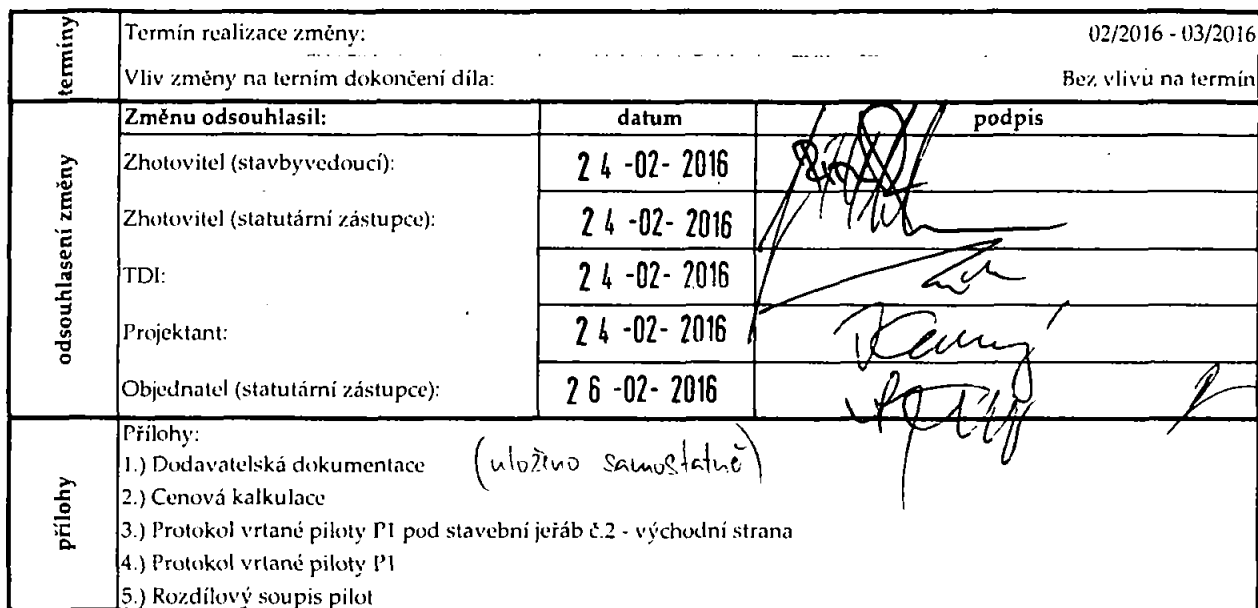 termíny
Termín realizace změny: 02/2016 - 03/2016
Vliv změny na termín dokončení díla: Bez vlivu na termín
odsouhlasení změny
Změnu odsouhlasil: datum podpis
Zhotovitel (stavbyvedoucí): 24 -02- 2016
Zhotovitel (statutární zástupce): 24 -02- 2016
TDI: 24 -02- 2016
Projektant: 24 -02- 2016
Objednatel (statutární zástupce): 26 -02- 2016
přílohy
Přílohy:
1.) Dodavatelská dokumentace (uloženo samostatně)
2.) Cenová kalkulace
3.) Protokol vrtané piloty P1 pod stavební jeřáb č.2 - východní strana
4.) Protokol vrtané piloty P1
5.) Rozdílový soupis pilot